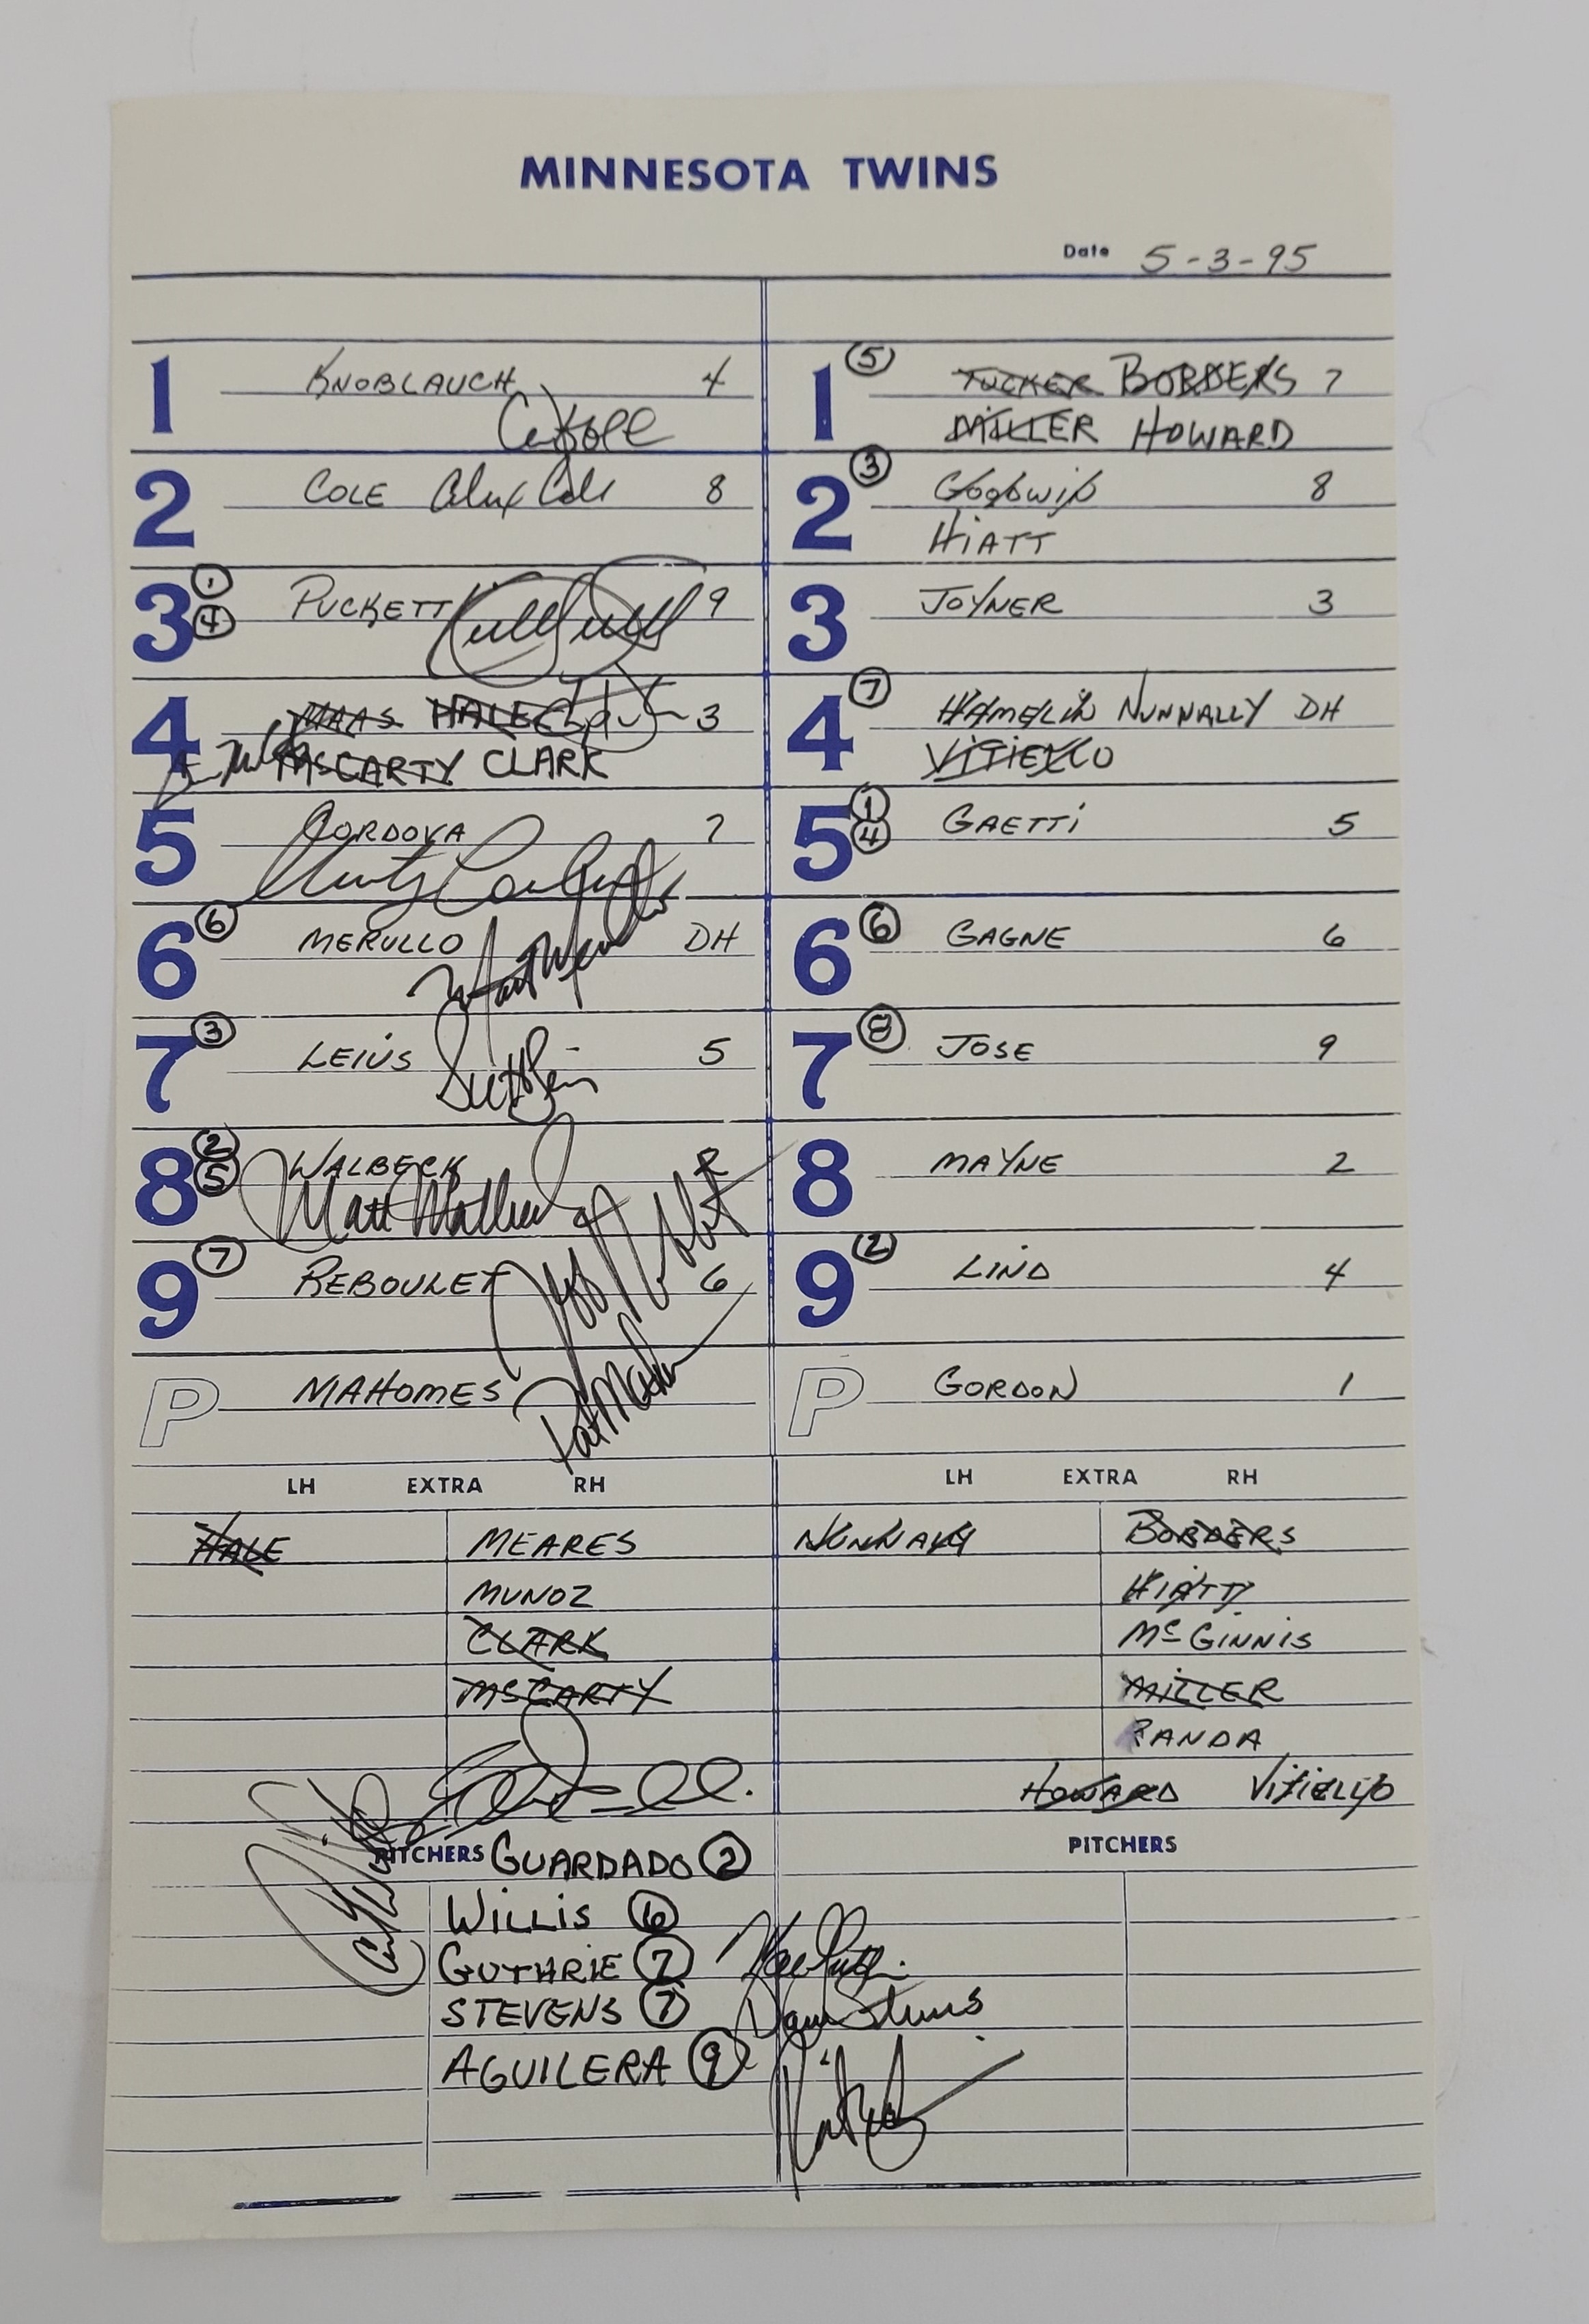 MINNESOTA TWINS
Date 5-3-95
1 KNOBLAUCH 4
2 COLE Alex Cole 8
3 1 4 PUCKETT 9
4 MAAS HALE 3
McCARTY CLARK
5 CORDOVA 7
Marty Cordova
6 6 MERULLO DH
Matt Merullo
7 3 LEIUS 5
8 2 5 WALBECK 2
Matt Walbeck
9 7 REBOULET 6
Jeff Reboulet
P MAHOMES
Pat Mahomes
LH EXTRA RH
HALE MEARES
MUNOZ
CLARK
McCARTY
PITCHERS GUARDADO 2
WILLIS 6
GUTHRIE 7
STEVENS 7 Dave Stevens
AGUILERA 9
1 5 TUCKER BORDERS 7
MILLER HOWARD
2 3 GOODWIN 8
HIATT
3 JOYNER 3
4 7 HAMELIN NUNNALLY DH
VITIELLO
5 1 4 GAETTI 5
6 6 GAGNE 6
7 8 JOSE 9
8 MAYNE 2
9 2 LIND 4
P GORDON 1
LH EXTRA RH
NUNNALLY BORDERS
HIATT
McGINNIS
MILLER
RANDA
HOWARD VITIELLO
PITCHERS